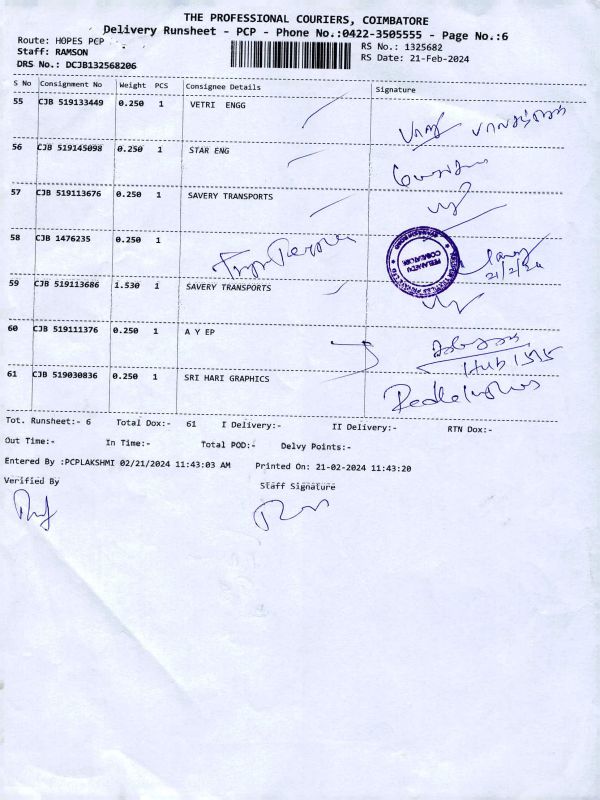 THE PROFESSIONAL COURIERS, COIMBATORE
Delivery Runsheet - PCP - Phone No.:0422-3505555 - Page No.:6
Route: HOPES PCP
RS No.: 1325682
Staff: RAMSON
RS Date: 21-Feb-2024
DRS No.: DCJB132568206
S No Consignment No Weight PCS Consignee Details Signature
55 CJB 519133449 0.250 1 VETRI ENGG
56 CJB 519145098 0.250 1 STAR ENG
57 CJB 519113676 0.250 1 SAVERY TRANSPORTS
58 CJB 1476235 0.250 1
21/2/24
59 CJB 519113686 1.530 1 SAVERY TRANSPORTS
60 CJB 519111376 0.250 1 A Y EP
HUB 1515
61 CJB 519030836 0.250 1 SRI HARI GRAPHICS
Tot. Runsheet:- 6 Total Dox:- 61 I Delivery:- II Delivery:- RTN Dox:-
Out Time:- In Time:- Total POD:- Delvy Points:-
Entered By :PCPLAKSHMI 02/21/2024 11:43:03 AM Printed On: 21-02-2024 11:43:20
Verified By Staff Signature